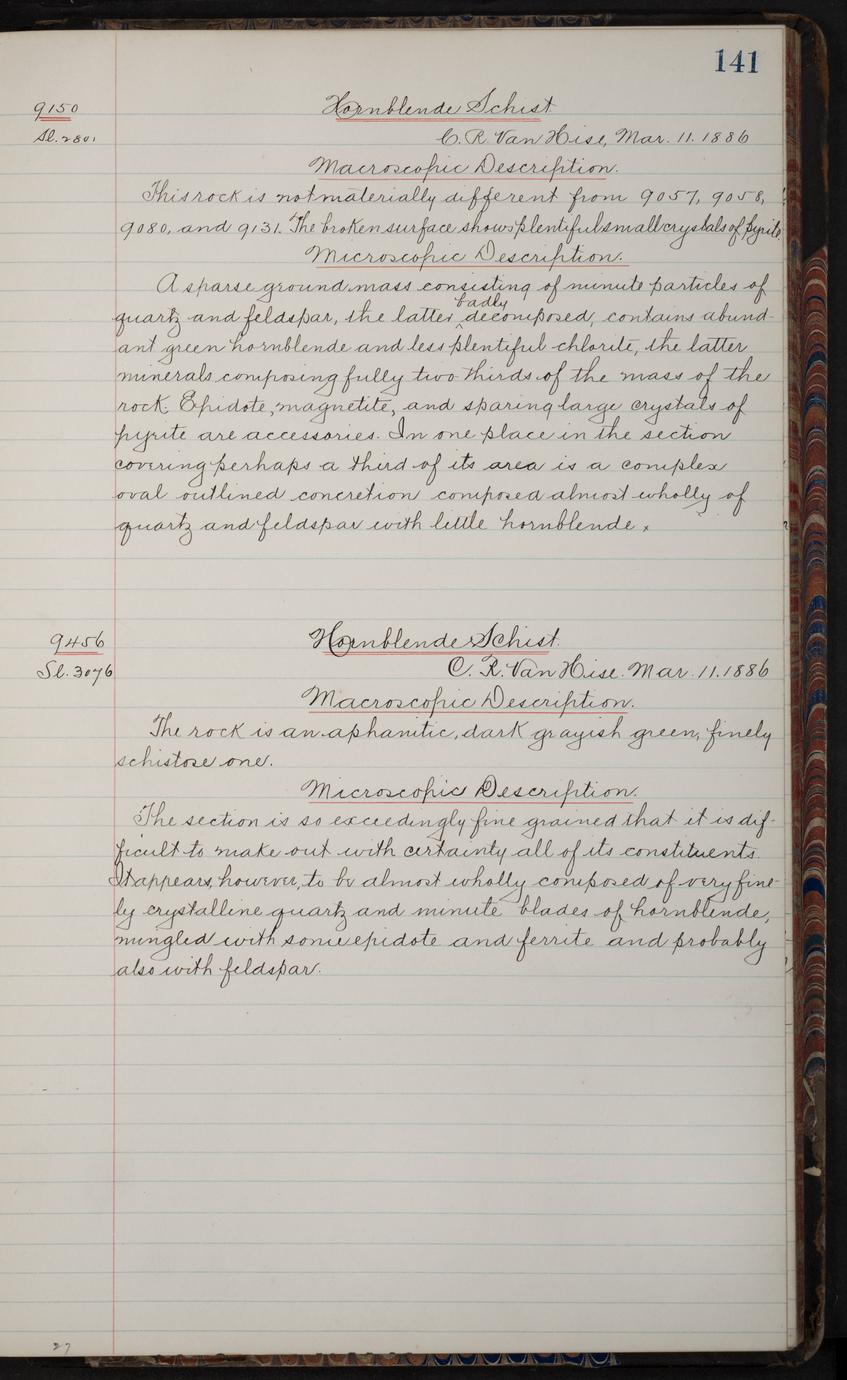 141
9150
Hornblende Schist
Sl. 2801
C. R. Van Hise, Mar. 11. 1886
Macroscopic Description.
This rock is not materially different from 9057, 9058,
9080, and 9131. The broken surface shows plentiful small crystals of pyrite.
Microscopic Description.
A sparse ground mass consisting of minute particles of
badly
quartz and feldspar, the latter ‸ decomposed, contains abund-
ant green hornblende and less plentiful chlorite, the latter
minerals composing fully two-thirds of the mass of the
rock. Epidote, magnetite, and sparing large crystals of
pyrite are accessories. In one place in the section
covering perhaps a third of its area is a complex
oval outlined concretion composed almost wholly of
quartz and feldspar with little hornblende.
9456
Hornblende Schist.
Sl. 3076
C. R. Van Hise. Mar. 11. 1886
Macroscopic Description.
The rock is an aphanitic, dark grayish green, finely
schistose one.
Microscopic Description.
The section is so exceedingly fine grained that it is dif-
ficult to make out with certainty all of its constituents.
It appears, however, to be almost wholly composed of very fine-
ly crystalline quartz and minute blades of hornblende,
mingled with some epidote and ferrite and probably
also with feldspar.
27